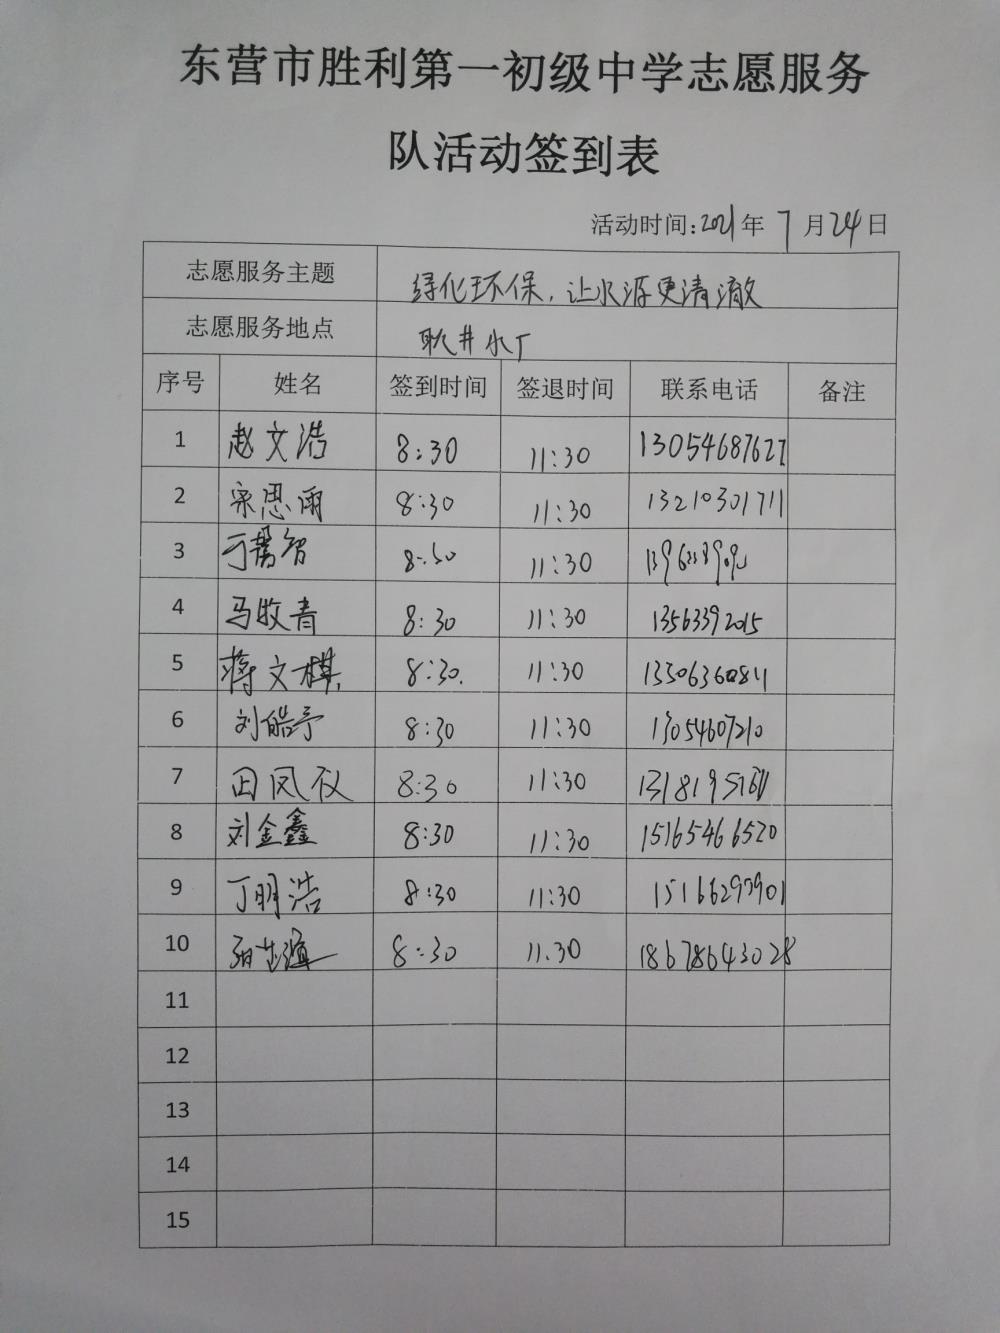 东营市胜利第一初级中学志愿服务
队活动签到表
活动时间:2021年 7 月24日
志愿服务主题 绿化环保，让水源更清澈
志愿服务地点 耿井水厂
序号 姓名 签到时间 签退时间 联系电话 备注
1 赵文浩 8:30 11:30 13054687627
2 宋思雨 8:30 11:30 13210301711
3 8:30 11:30
4 马牧青 8:30 11:30 13563392015
5 蒋文棋 8:30. 11:30 13506360811
6 刘皓予 8:30 11:30 13054607210
7 田凤仪 8:30 11:30
8 刘金鑫 8:30 11:30 15165466520
9 丁明浩 8:30 11:30 15166297901
10 8:30 11:30 18678643028
11
12
13
14
15